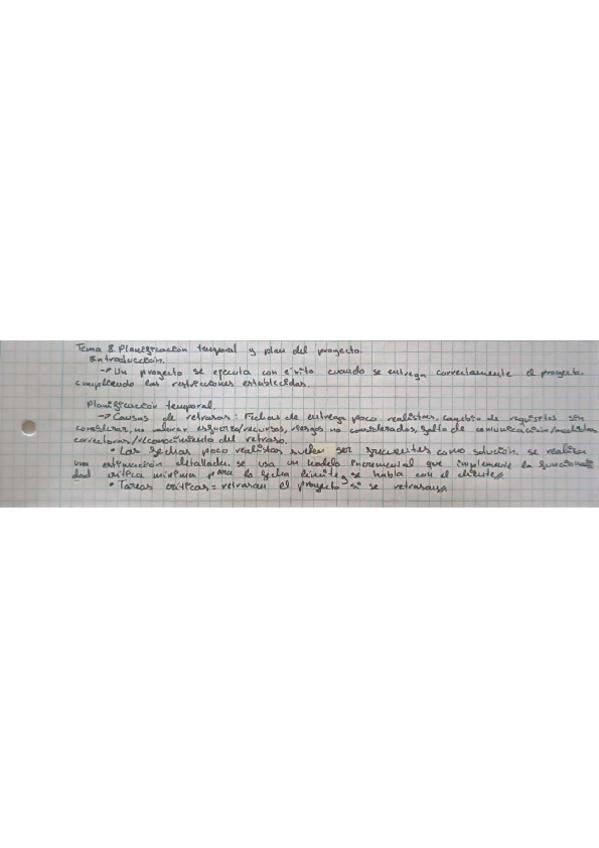 Tema 8. Planificación temporal y plan del proyecto.
Introducción.
-> Un proyecto se ejecuta con éxito cuando se entrega correctamente el proyecto.
cumpliendo las restricciones establecidas.
Planificación temporal
-> Causas de retrasos: Fechas de entrega poco realistas, cambio de requisitos sin
considerar, no valorar esfuerzo/recursos, riesgos no considerados, falta de comunicación/medidas
correctoras/reconocimiento del retraso.
• Las fechas poco realistas suelen ser frecuentes como solución, se realiza
una estimación detallada, se usa un modelo incremental que implemente la funcionali
dad crítica mínima para la fecha límite y se habla con el cliente.
• Tareas críticas = retrasan el proyecto si se retrasan.